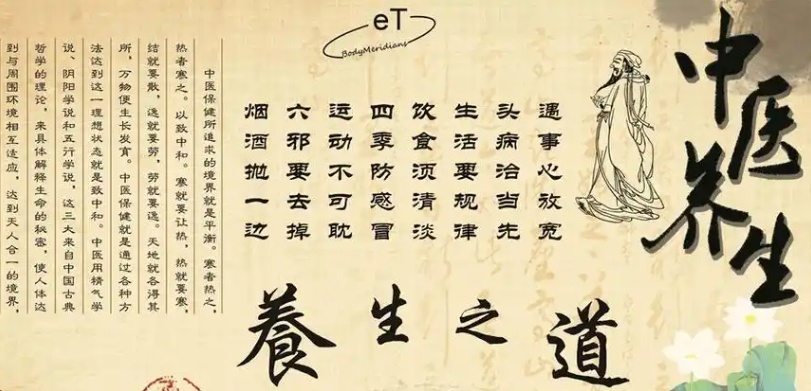 中医养生
eT
BodyMeridians
遇事心放宽
头病治当先
生活要规律
饮食须清淡
四季防感冒
运动不可耽
六邪要去掉
烟酒抛一边
養生之道
中医保健所追求的境界就是平衡。寒者热之，
热者寒之。以致中和。寒就要让热，热就要寒，
结就要散，逸就要劳，劳就要逸。天地就各得其
所，万物便生长发育。中医保健就是通过各种方
法达到这一理想状态就是致中和。中医用精气学
说、阴阳学说和五行学说，这三大来自中国古典
哲学的理论，来具体解释生命的秘密，使人体达
到与周围环境相互适应，达到天人合一的境界，